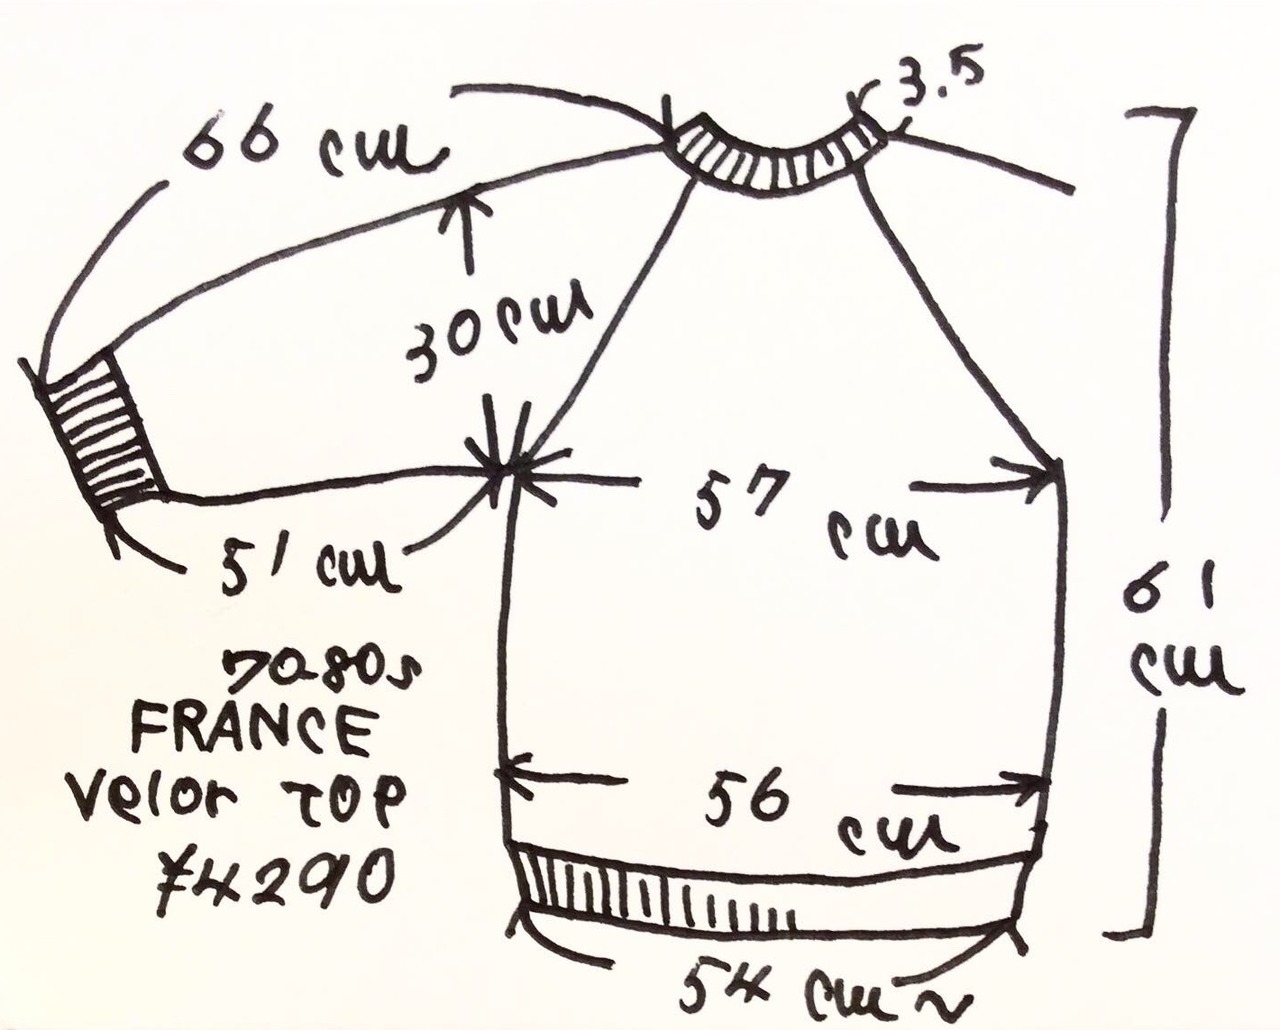 3.5
66 cm
30 cm
57 cm
51 cm
61 cm
70-80s
FRANCE
Velor TOP
¥4290
56 cm
54 cm~